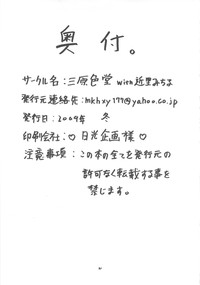 奥付。
サークル名：三原色堂 with 近里みちよ
発行元連絡先：mkhxy177@yahoo.co.jp
発行日：2009年 冬
印刷会社：♡日光企画様♡
注意事項：この本の全てを発行元の
許可なく転載する事を
禁じます。